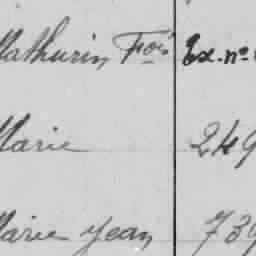 Mathurin Fois Ex. no
Marie 249
Marie Jean 739